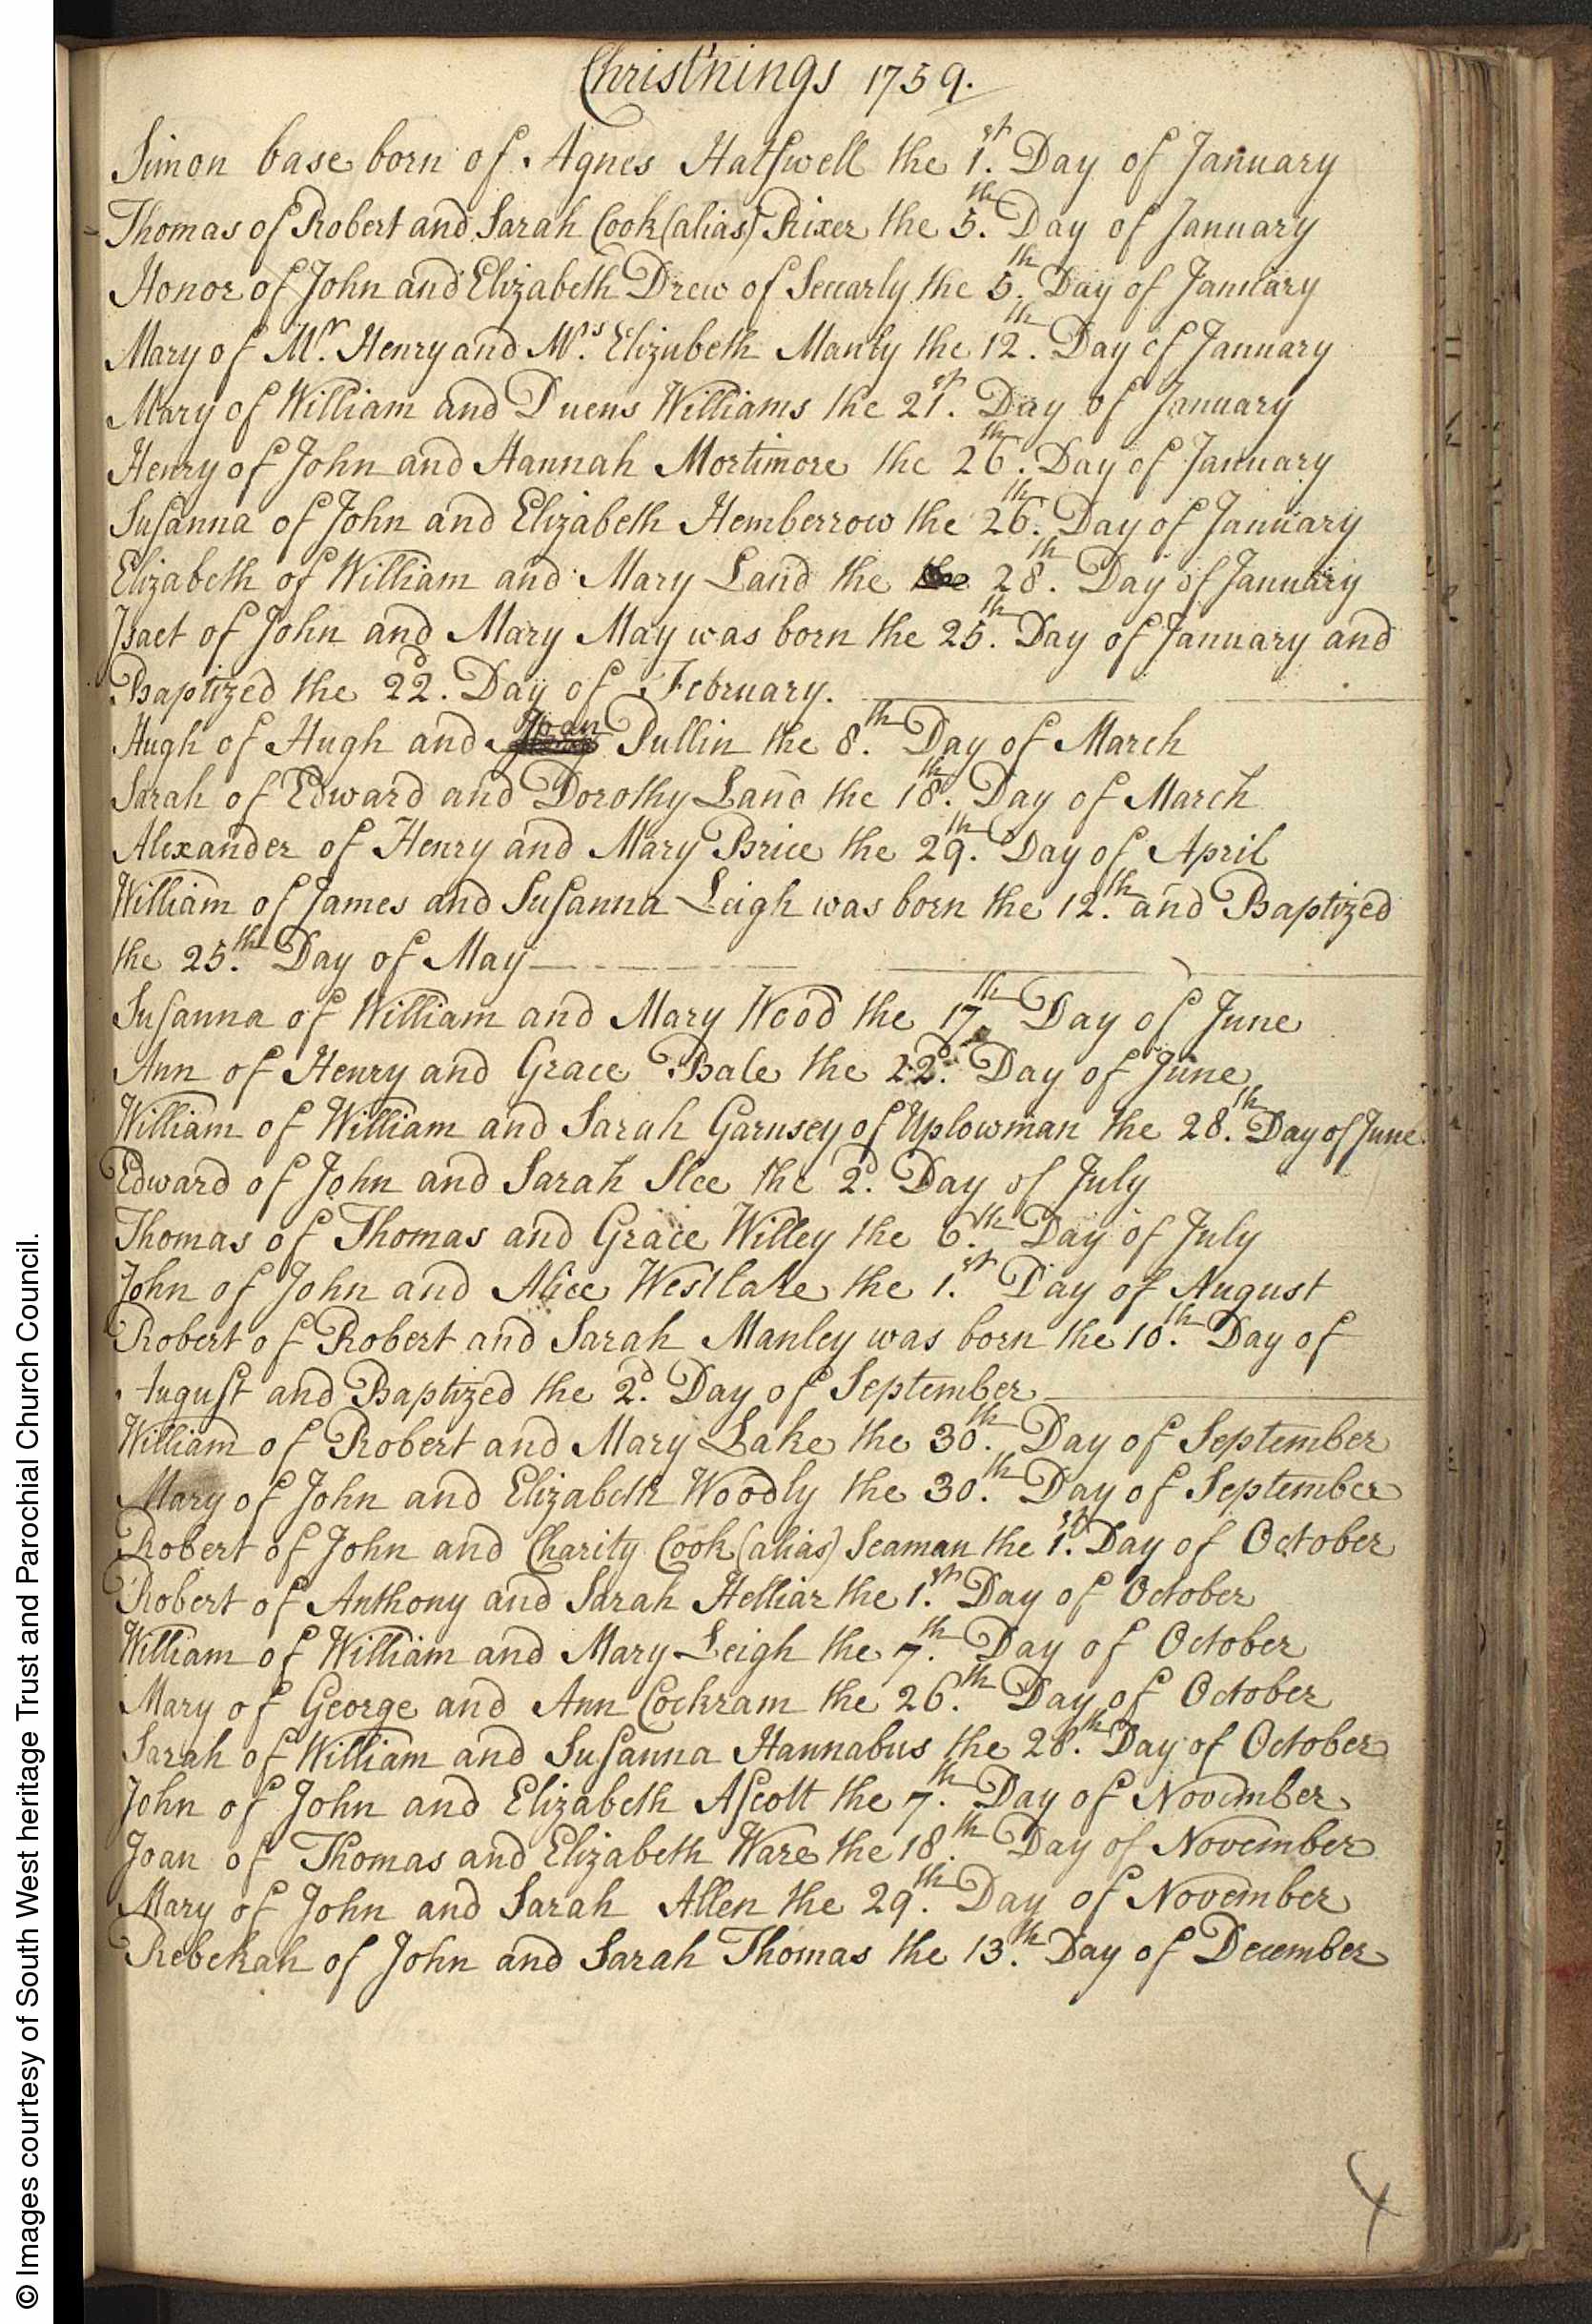 Christ'nings 1759.
Simon base born of Agnes Hatswell the 1.st Day of January
Thomas of Robert and Sarah Cook (alias) Rixer the 5.th Day of January
Honor of John and Elizabeth Drew of the 5.th Day of January
Mary of Mr. Henry and Mrs. Elizabeth Manly the 12.th Day of January
Mary of William and Williams the 21.st Day of January
Henry of John and Hannah Mortimore the 26.th Day of January
Susanna of John and Elizabeth Hemberrow the 26.th Day of January
Elizabeth of William and Mary Land the the 28.th Day of January
of John and Mary May was born the 25.th Day of January and
Baptized the 22.d Day of February.
Hugh of Hugh and Joan Pullin the 8.th Day of March
Sarah of Edward and Dorothy Land the 18.th Day of March
Alexander of Henry and Mary Brice the 29.th Day of April
William of James and Susanna Leigh was born the 12.th and Baptized
the 25.th Day of May
Susanna of William and Mary Wood the 17.th Day of June
Ann of Henry and Grace Bale the 22.d Day of June
William of William and Sarah Garnsey of Uplowman the 28.th Day of June
Edward of John and Sarah Slee the 2.d Day of July
Thomas of Thomas and Grace Willey the 6.th Day of July
John of John and Alice Westlake the 1.st Day of August
Robert of Robert and Sarah Manley was born the 10.th Day of
August and Baptized the 2.d Day of September
William of Robert and Mary Lake the 30.th Day of September
Mary of John and Elizabeth Woodly the 30.th Day of September
Robert of John and Charity Cook (alias) Seaman the 1.st Day of October
Robert of Anthony and Sarah Helliar the 1.st Day of October
William of William and Mary Leigh the 7.th Day of October
Mary of George and Ann Cockram the 26.th Day of October
Sarah of William and Susanna Hannabus the 28.th Day of October
John of John and Elizabeth Ascott the 7.th Day of November
Joan of Thomas and Elizabeth Ware the 18.th Day of November
Mary of John and Sarah Allen the 29.th Day of November
Rebekah of John and Sarah Thomas the 13.th Day of December
© Images courtesy of South West heritage Trust and Parochial Church Council.